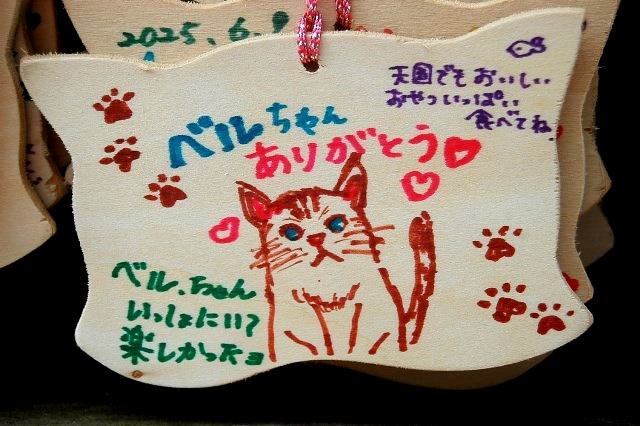 2025.6.9
天国でもおいしい
おやついっぱい
食べてね
ベルちゃん
ありがとう
ベルちゃん
いっしょにいて
楽しかったヨ